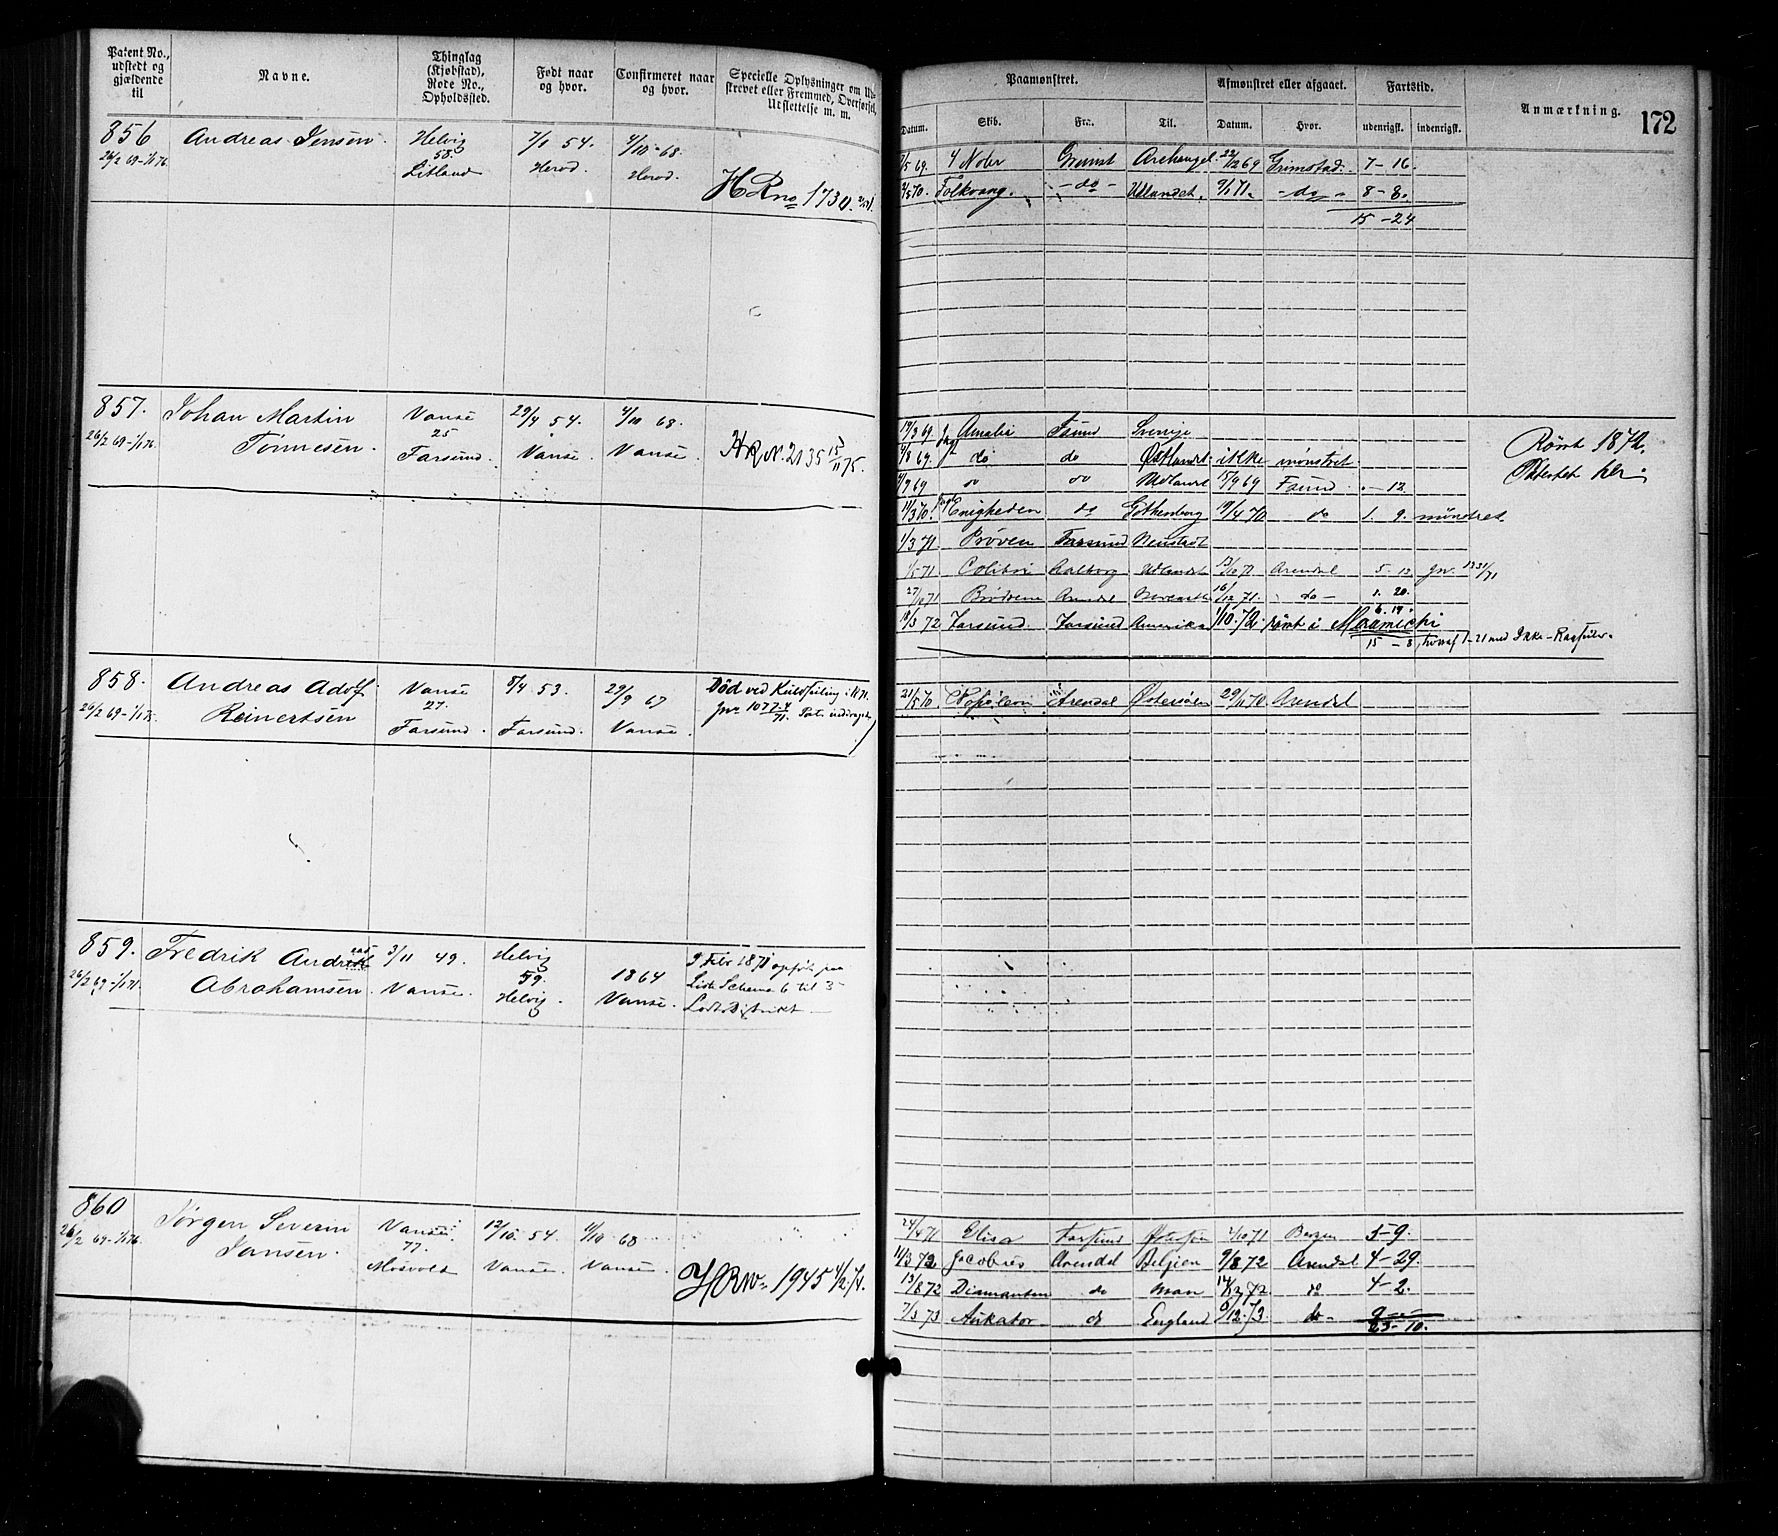 Patent No., udstedt og gjældende til
Navne.
Thinglag (Kjøbstad), Rode No., Opholdssted.
Født naar og hvor.
Confirmeret naar og hvor.
Specielle Oplysninger om Udstrevet eller Fremmed, Overførsel, Udslettelse m. m.
Paamønstret.
Afmønstret eller afgaaet.
Fartstid.
Anmærkning.
172
Datum.
Skib.
Fra.
Til.
Datum.
Hvor.
udenrigsk.
indenrigsk.
856
26/2 69-1/1 76
Andreas Jensen
Helvig
58.
Litland
7/1 54.
Herod.
4/10-68.
Herod.
HRno 1730.
4/5 69. 4 Noler Grimst Archangel. 22/12 69 Grimstad. 7-16.
70. Folkvang. -do- Udlandet. 9/1 71. -do- 8-8.
15-24
857.
26/2 69-1/1 76.
Johan Martin
Tønnesen.
Vanse
25
Farsund.
29/4 54.
Vanse.
4/10 68.
Vanse.
HR N. 2135 15/11 75.
Rømt 1872.
19/3 69. Jagt Amalie Fsund Sverige
4/8 69. do do Østlandet. ikke mønstret
1/9 69 do do Udlandet 15/9 69 Fsund. -12.
11/3 70. Enigheden do Gothenborg 19/4 70 do 1. 9. mønstret.
1/3 71. Prøven Farsund Neustadt
1/5 71 Colibri Aalborg Udlandet 13/10 71 Arendal 5. 13 Jnr.
27/10 71 Brødrene Arendal 16/12 71. do- 1. 20.
18/3 72 Farsund. Farsund Amerika 1/10. 72. rømt i Miramichi 6. 19.
15-8
858.
26/2 69-1/1 75.
Andreas Adolf
Reinertsen
Vanse
27.
Farsund.
8/4 53.
Farsund.
29/9 67
Vanse.
Død ved Kulosforgiftning
21/5 70 Arendal Østersøen 29/11 70 Arendal
859.
26/2 69-1/1 71.
Fredrik Andreas
Abrahamsen.
3/11 49.
Vanse.
Helvig
59.
Helvig.
1864
Vanse.
9 Febr 1871 opført paa
Liste Schema 6 til 3
Lodsdistrikt
860
26/2 69-1/1 76
Jørgen Severin
Jansen.
Vanse.
77.
Mosvold
12/10. 54.
Vanse.
4/10 68
Vanse.
HRno 1945 4/2 74.
24/4 71 Elisa Farsund Østersøen 2/10 71 Bergen 5-9.
11/3 72 Jacobus Arendal Belgien 9/8 72 Arendal 4-29.
13/8 72 Diamanten do 14/12 72 do 4-2.
7/3 73 do England 6/12 73 do- 9 -
23-10.